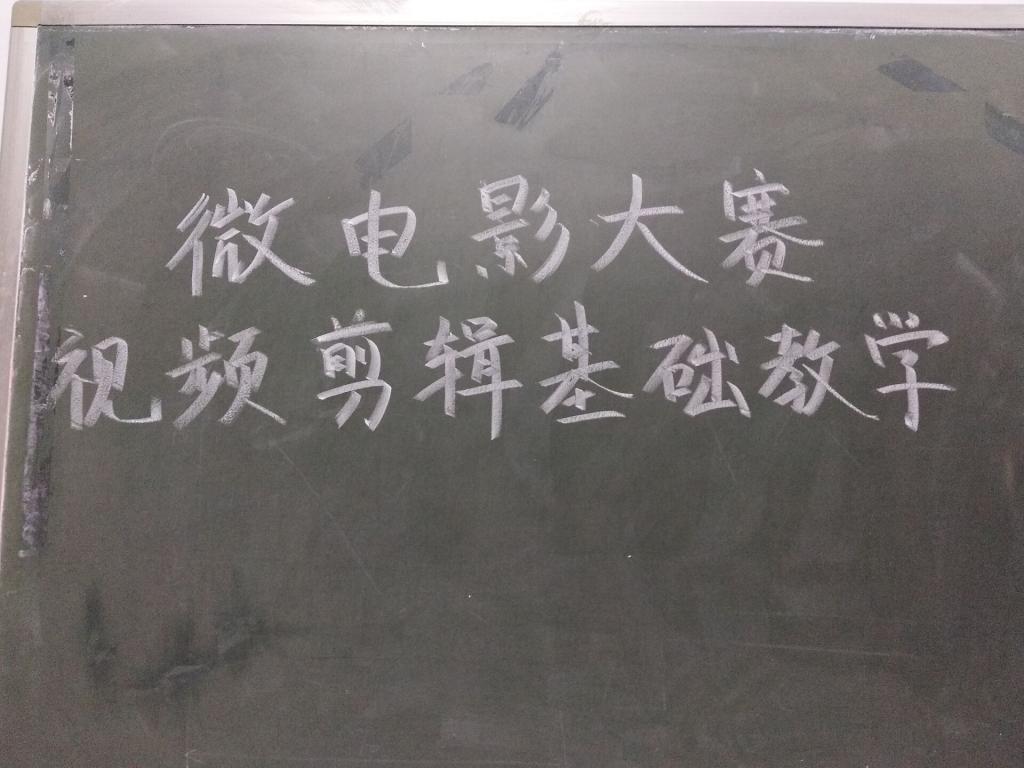 微电影大赛
视频剪辑基础教学